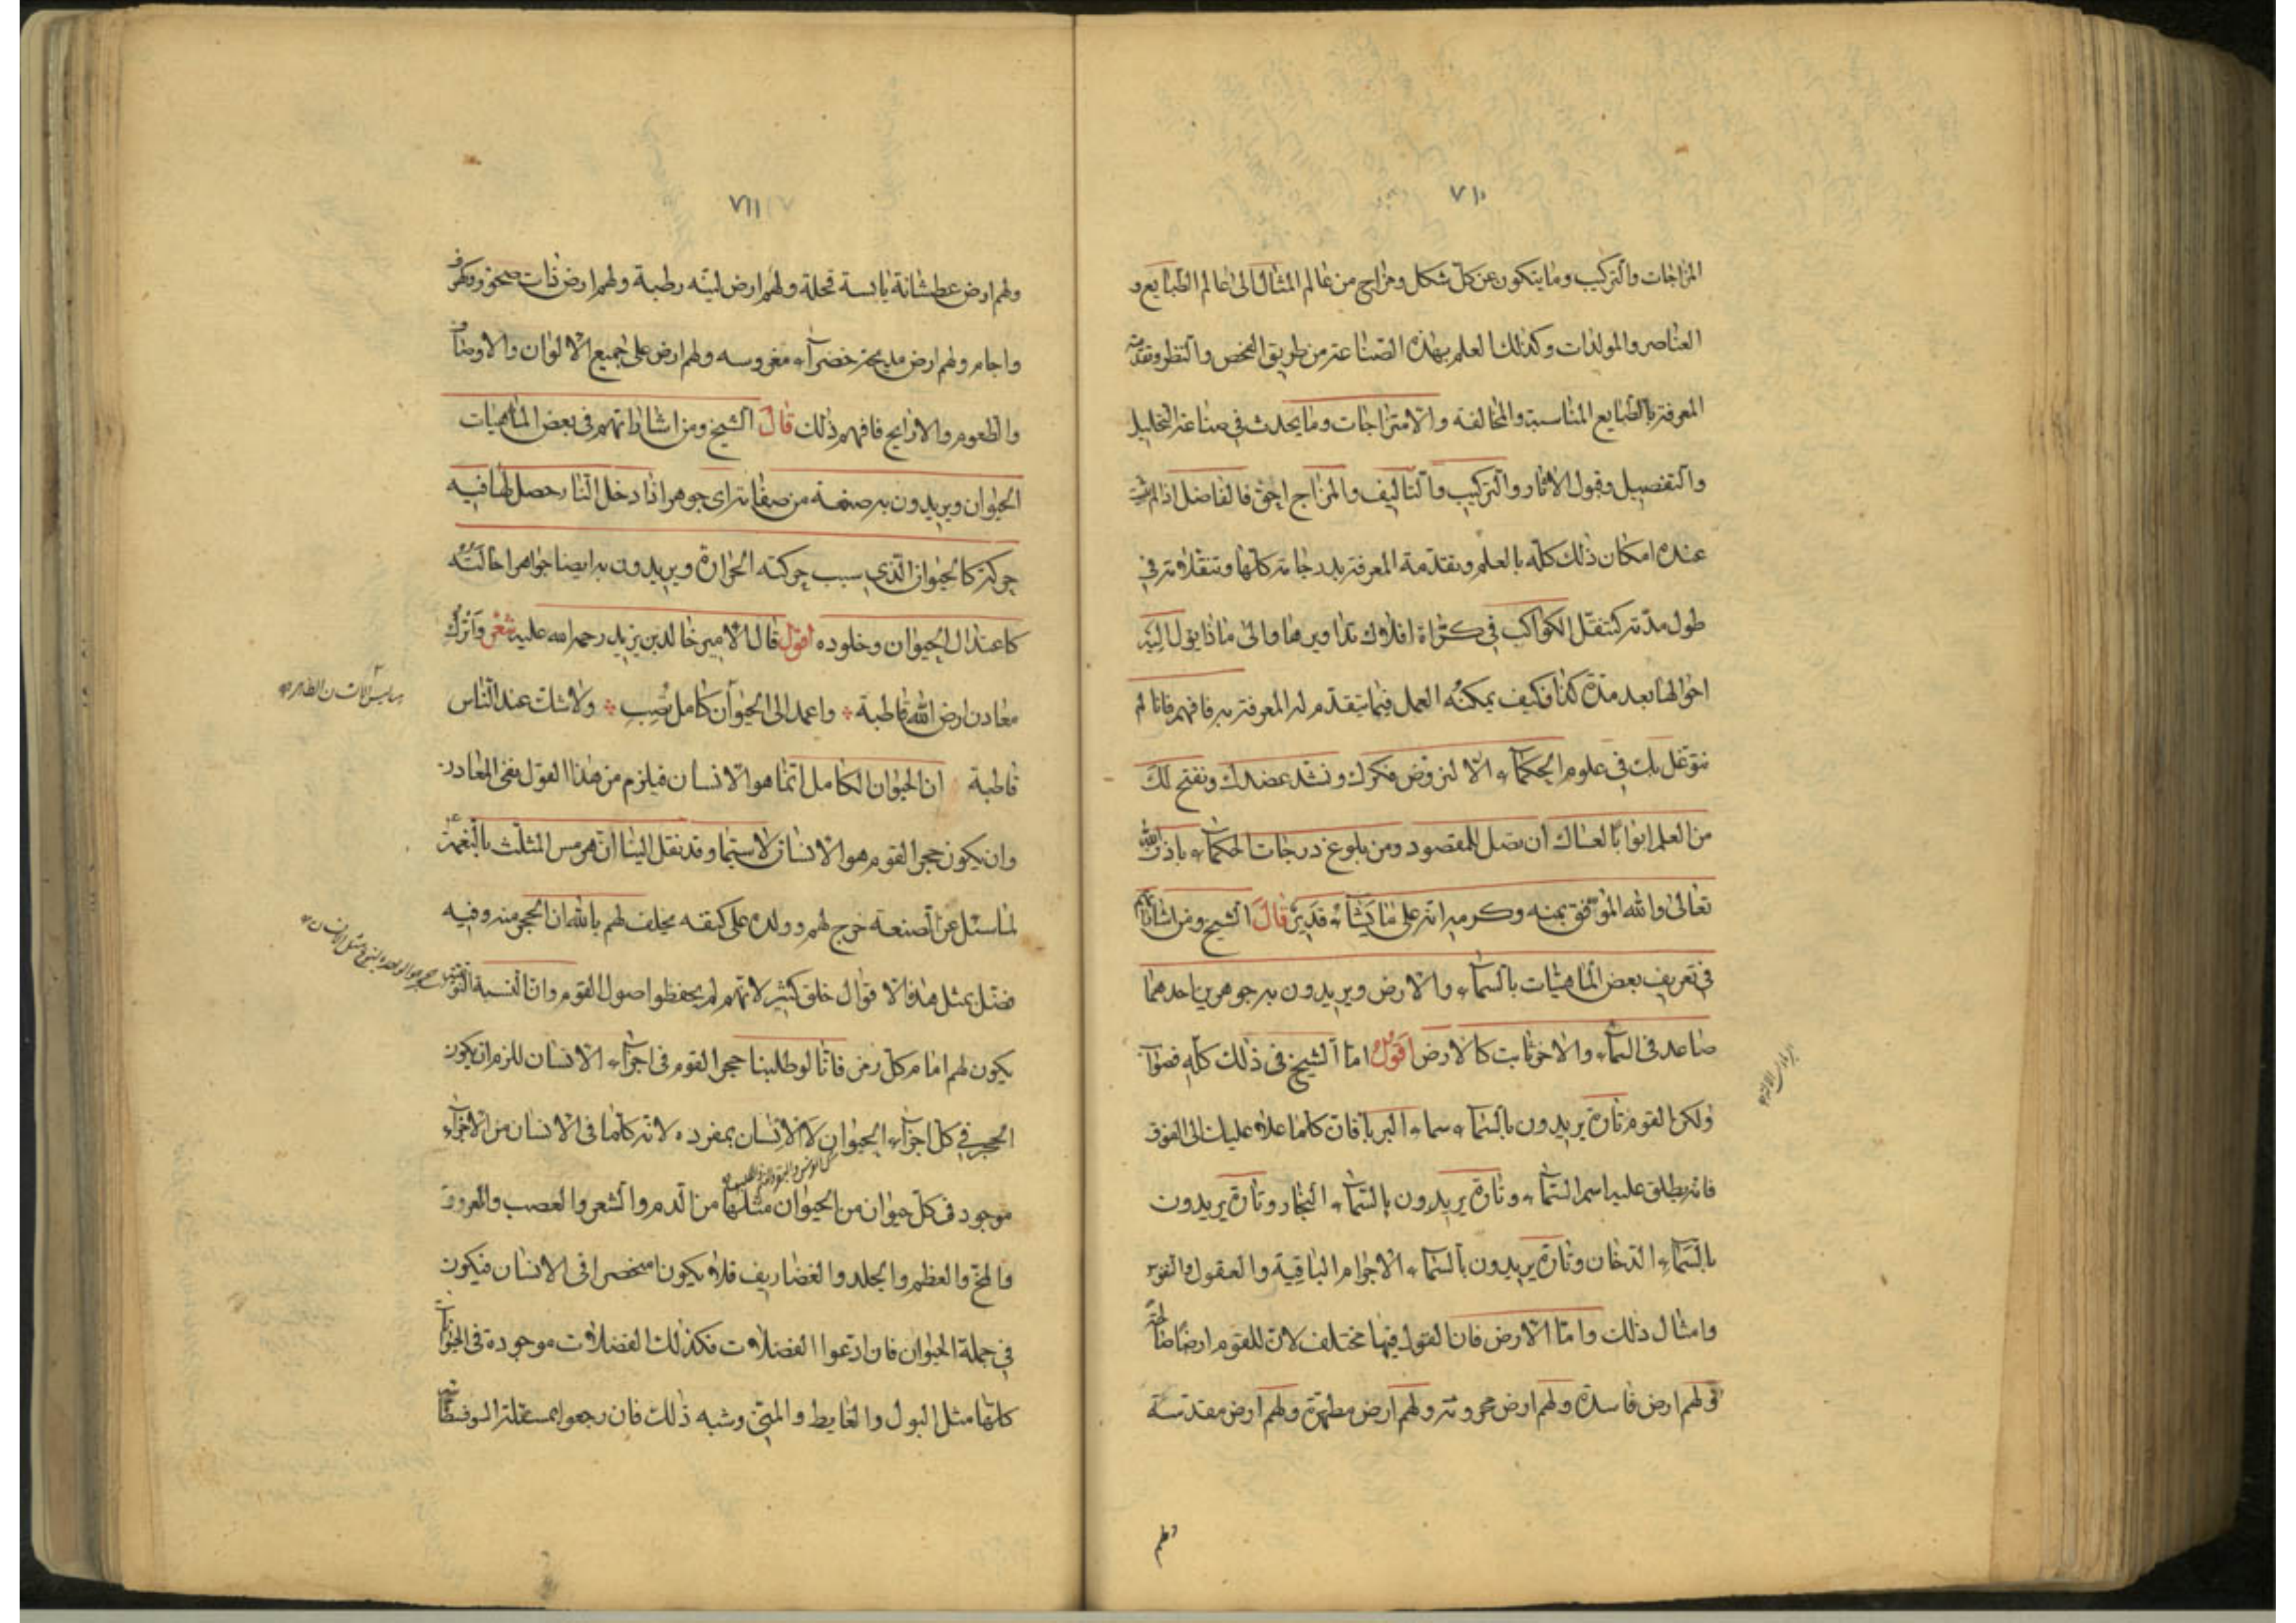 ٧١٠
المزاجات والتركيب وما يتكون عن كل شكل ومزاج من عالم المثال الى عالم الطبايع و
العناصر والمولدات وكذلك العلم بهذه الصناعة من طريق الفحص والنظر وتقدمة
المعرفة بالطبايع المناسبة والمخالفة والامتزاجات وما يحدث في صناعة التحليل
والتفصيل وقبول الاثار والتركيب والتاليف والمزاج احق فالفاضل اذا لم
عنده امكان ذلك كله بالعلم وبتقدمة المعرفة بدرجاته كلها وتنقلاته في
طول مدته كتنقل الكواكب في كراة افلاك تداويرها والى ماذا يؤل اليه
احوالها بعد مدة كذا فكيف يمكنه العمل فيما يتقدم له المعرفة به فافهم فانا لم
نتوغل بك في علوم الحكماء الا لنروض فكرك ونشد عضدك ونفتح لك
من العلم ابوابا لعساك أن تصل للمقصود ومن بلوغ درجات الحكماء باذن الله
تعالى والله الموفق بمنه وكرمه انه على ما يشاء قدير قال الشيخ ومن اشاراتهم
في تعريف بعض الماهيات بالسماء والارض ويريدون به جوهرين احدهما
صاعد في السماء والاخر ثابت كالارض اقول اما الشيخ في ذلك كله فصواب
ولكن القوم تارة يريدون بالسماء سماء البربا فان كلما علاه عليك الى الفوق
فانه يطلق عليه اسم السماء وتارة يريدون بالسماء البخار وتارة يريدون
بالسماء الدخان وتارة يريدون بالسماء الاجرام الباقية والعقول والنفوس
وامثال ذلك واما الارض فان القول فيها مختلف لان للقوم ارضا
ولهم ارض فاسدة ولهم ارض محروثة ولهم ارض مطهرة ولهم ارض مقدسة
ولهم
٧١١
ولهم ارض عطشانة يابسة قحلة ولهم ارض لينه رطبة ولهم ارض ذات صخور وكهوف
واجام ولهم ارض مدبجة خضراء مغروسه ولهم ارض على جميع الالوان والاوصاف
والطعوم والارايح فافهم ذلك قال الشيخ ومن اشاراتهم في بعض الماهيات
الحيوان ويريدون به صفة من صفاته اى جوهر اذا دخل النار حصل لها فيه
حركة كالحيوان الذي سبب حركته الحرارة ويريدون به ايضا جواهرا حالته
كاعتدال الحيوان وخلوده اقول قال الامير خالد بن يزيد رحمه الله عليه شعر واترك
معادن ارض الله قاطبة واعمد الى الحيوان كامل تصب ولا شك عند الناس
قاطبة ان الحيوان الكامل انما هو الانسان فيلزم من هذا القول نفى المعادن
وان يكون حجر القوم هو الانسان لا سيما وقد نقل الينا ان هرمس المثلث بالنعمة
لما سئل عن الصنعة خرج لهم وولده على كتفه يحلف لهم بالله ان الحجر منه وفيه
فضل بمثل هذه الاقوال خلق كثير لانهم لم يحفظوا اصول القوم وان النسبة
يكون لهم امام كل رمز فانا لو طلبنا حجر القوم في اجزاء الانسان للزم ان يكون
الحجر في كل اجزاء الحيوان لا الانسان بمفرده لانه كلما في الانسان من الاجزاء
موجود في كل حيوان من الحيوان مثلها من الدم والشعر والعصب والعروق
والمخ والعظم والجلد والغضاريف فلا يكون منحصرا في الانسان فيكون
في جملة الحيوان فان ادعوا الفضلات فكذلك الفضلات موجودة في الحيوانات
كلها مثل البول والغايط والمني وشبه ذلك فان رجعوا